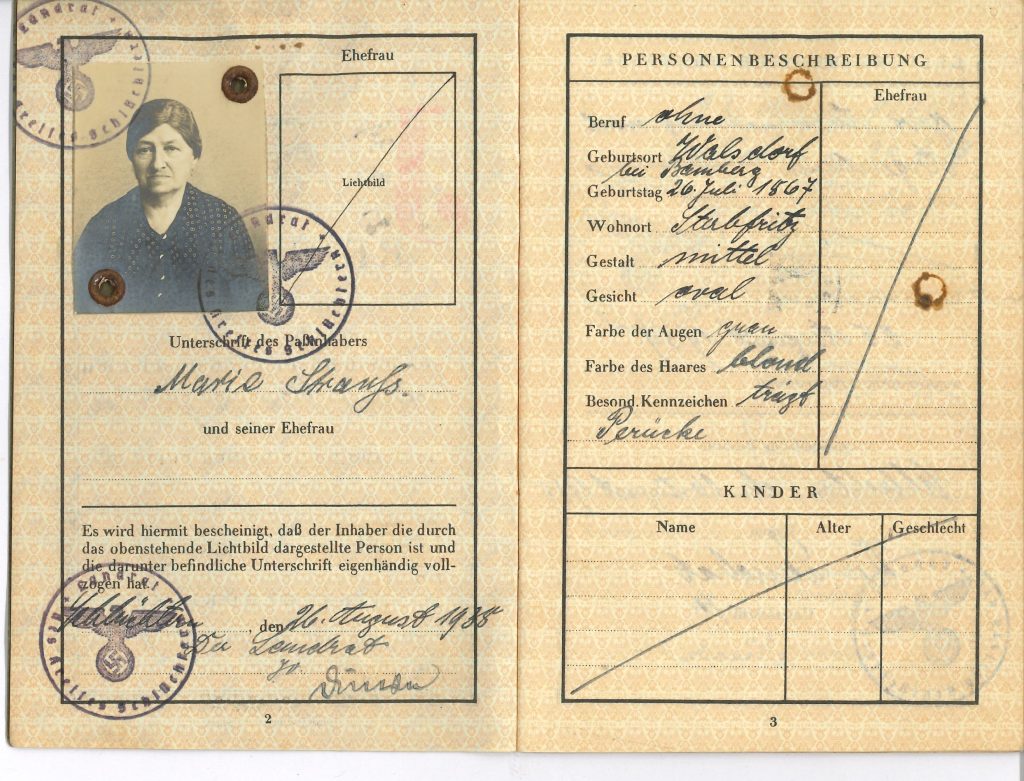 Landrat
des Kreises Schlüchtern
Ehefrau
Lichtbild
Landrat
des Kreises Schlüchtern
Unterschrift des Paßinhabers
Marie Strauss.
und seiner Ehefrau
Es wird hiermit bescheinigt, daß der Inhaber die durch
das obenstehende Lichtbild dargestellte Person ist und
die darunter befindliche Unterschrift eigenhändig voll-
zogen hat.
Schlüchtern, den 26. August 1938
Der Landrat
Landrat
des Kreises Schlüchtern
2
PERSONENBESCHREIBUNG
Ehefrau
Beruf ohne
Geburtsort Walsdorf
bei Bamberg
Geburtstag 26. Juli 1867
Wohnort
Gestalt mittel
Gesicht oval
Farbe der Augen grau
Farbe des Haares blond
Besond. Kennzeichen trägt
Perücke
KINDER
Name Alter Geschlecht
3